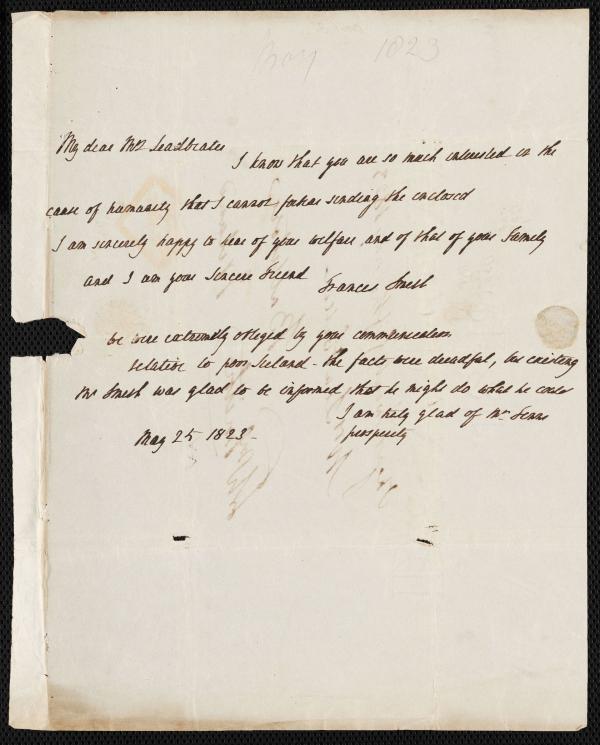 May 1823
My dear Mrs Leadbeater
I know that you are so much interested in the
cause of humanity that I cannot forbear sending the enclosed
I am sincerely happy to hear of your welfare and of that of your Family
and I am your sincere Friend
Frances Smith
We were extremely obliged by your communication
relative to poor Ireland - the facts were dreadful, but existing
Mr Smith was glad to be informed that he might do what he could
I am truly glad of Mr
prosperity
May 25 1823 -